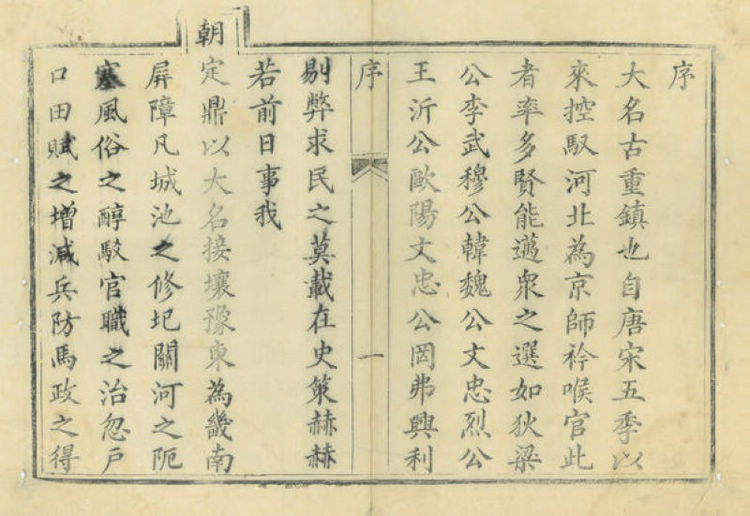 序
大名古重鎮也自唐宋五季以
來控馭河北為京師衿喉官此
者率多賢能邁衆之選如狄梁
公李武穆公韓魏公文忠烈公
王沂公歐陽文忠公罔弗興利
序 一
剔弊求民之莫載在史策赫赫
若前日事我
朝定鼎以大名接壤豫東為畿南
屏障凡城池之修圮關河之阨
塞風俗之醇駁官職之治忽戶
口田賦之增減兵防馬政之得